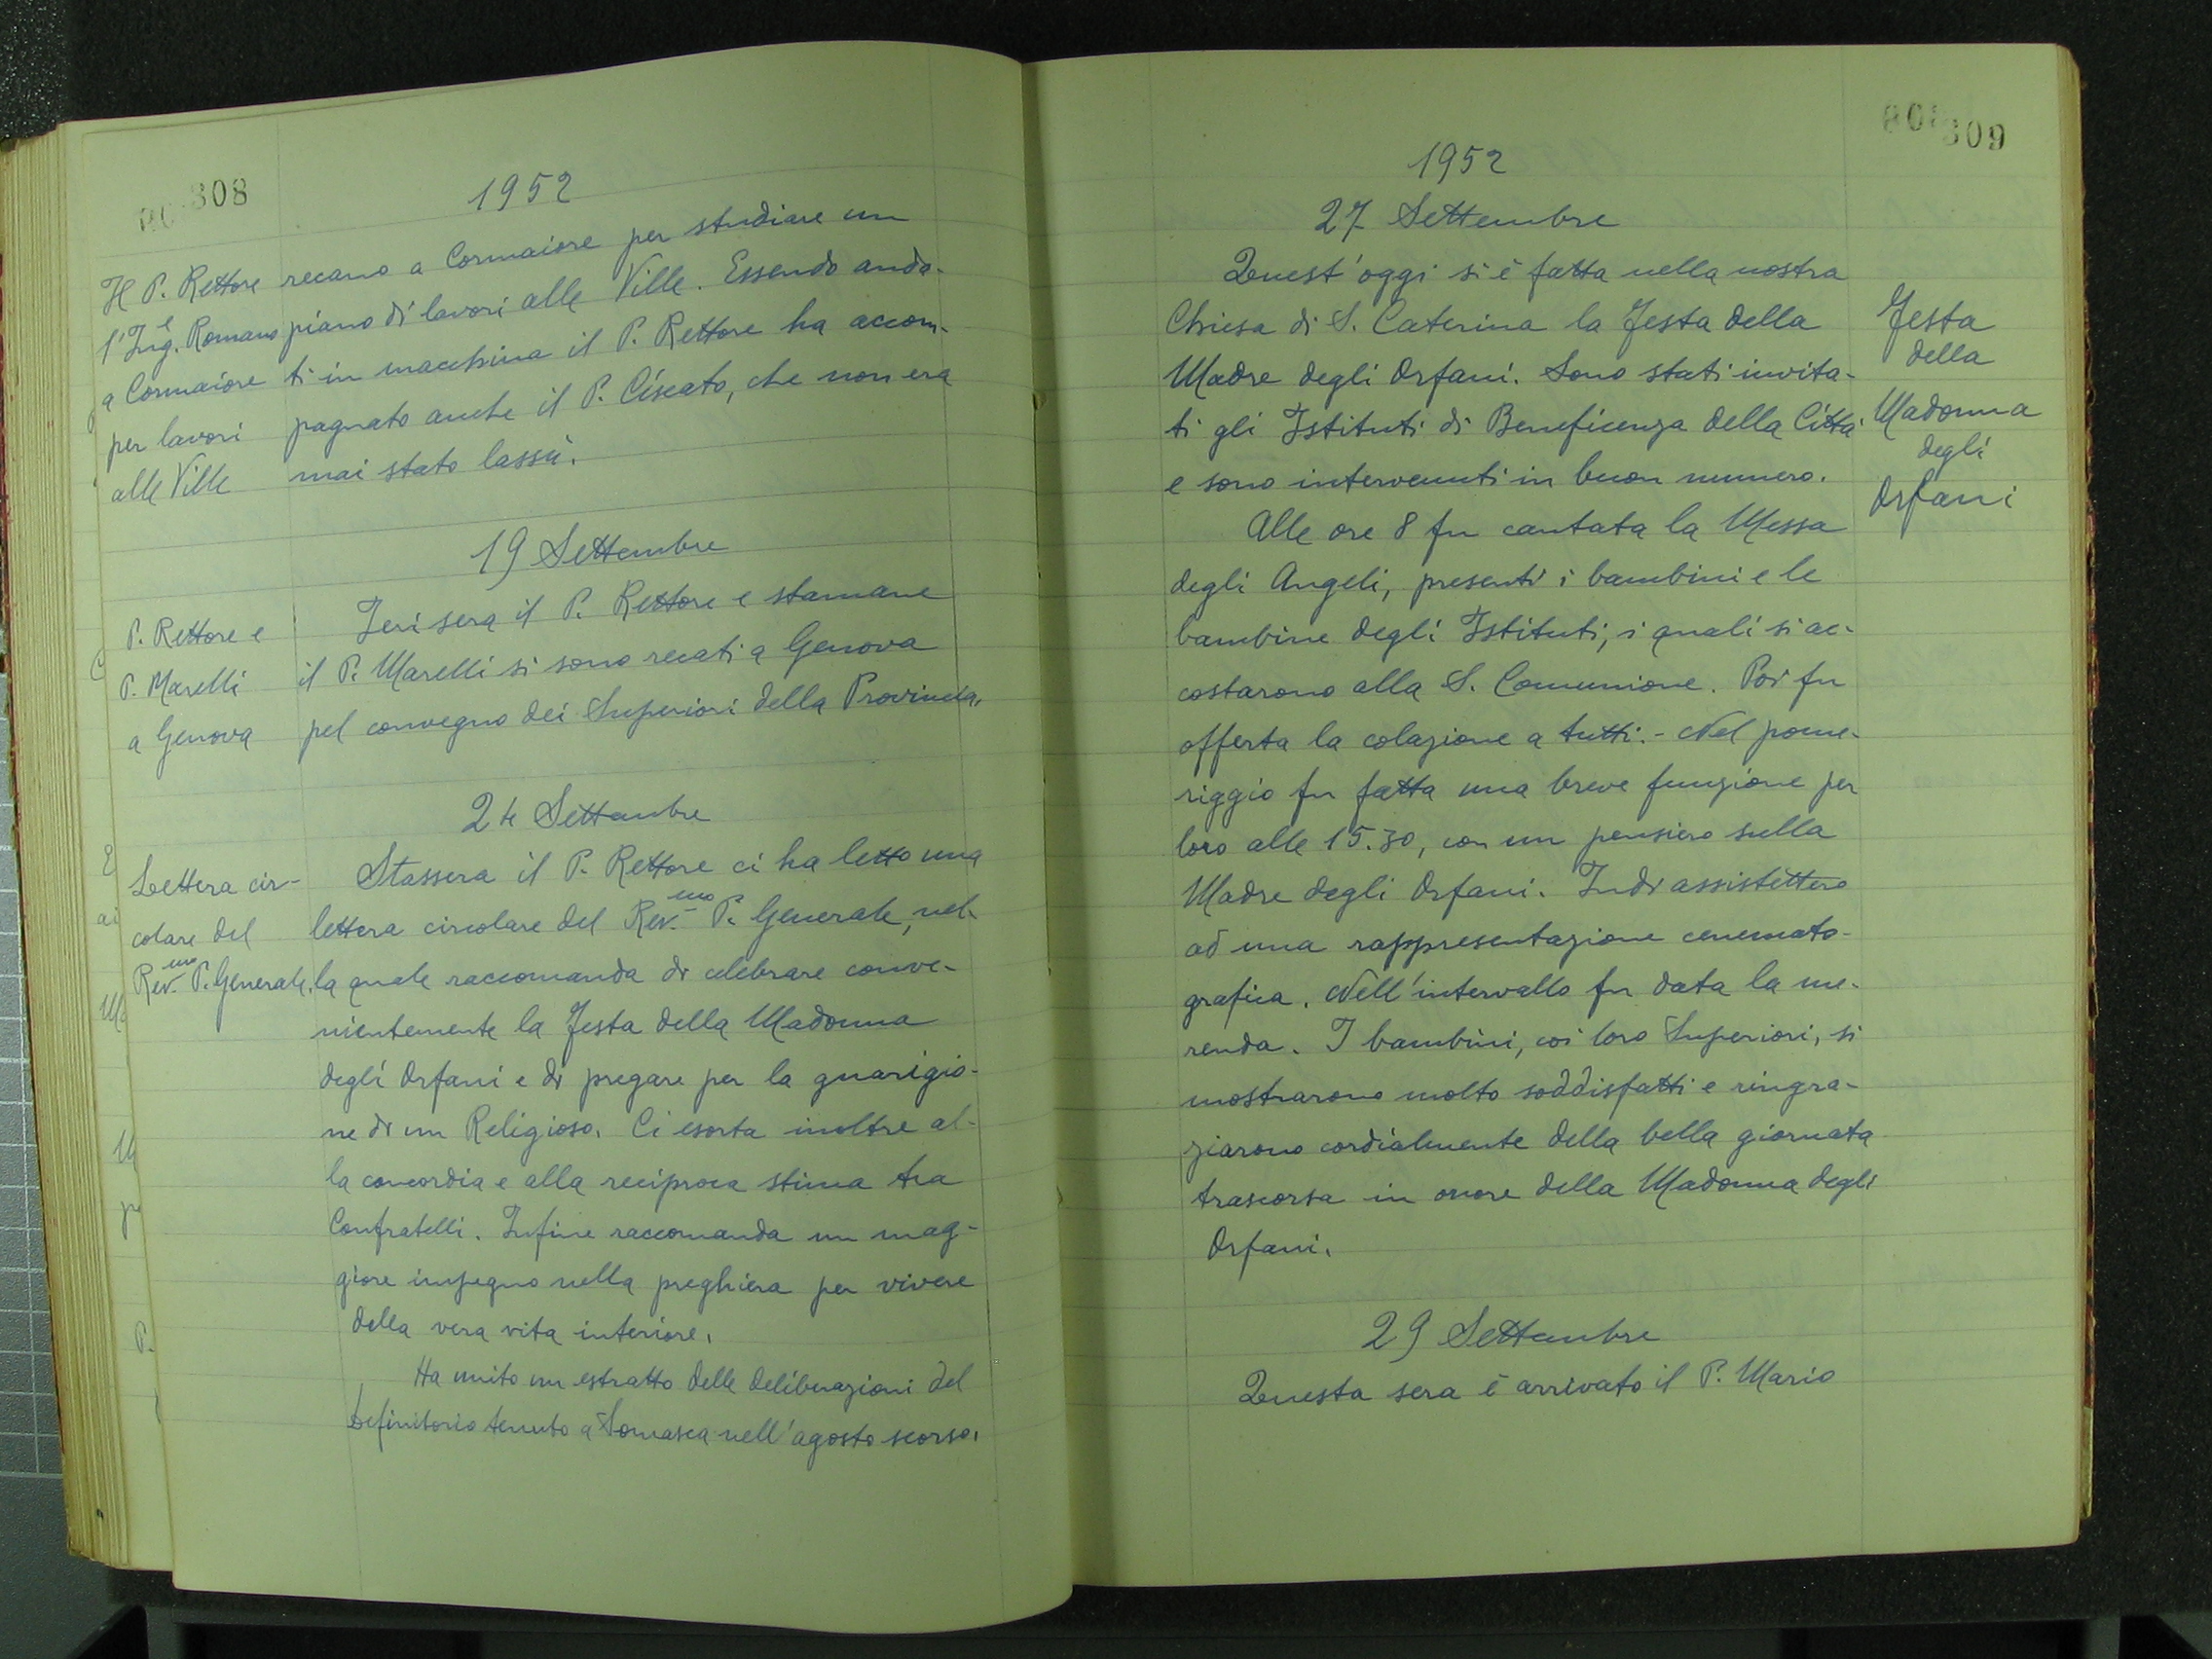 308
1952
Il P. Rettore
e
l'Ing. Romano
a Cormaiore
per lavori
alle Ville
recano a Cormaiore per studiare un
piano di lavori alle Ville. Essendo anda-
ti in macchina il P. Rettore ha accom-
pagnato anche il P. Ciscato, che non era
mai stato lassù.
19 Settembre
P. Rettore e
P. Marelli
a Genova
Jeri sera il P. Rettore e stamane
il P. Marelli si sono recati a Genova
pel convegno dei Superiori della Provincia.
24 Settembre
Lettera cir-
colare del
Rev.mo P. Generale.
Stassera il P. Rettore ci ha letto una
lettera circolare del Rev.mo P. Generale, nel-
la quale raccomanda di celebrare conve-
nientemente la Festa della Madonna
degli Orfani e di pregare per la guarigio-
ne di un Religioso. Ci esorta inoltre al-
la concordia e alla reciproca stima tra
Confratelli. Infine raccomanda un mag-
giore impegno nella preghiera per vivere
della vera vita interiore.
Ha unito un estratto delle deliberazioni del
Definitorio tenuto a Somasca nell'agosto scorso.
309
1952
27 Settembre
Quest'oggi si è fatta nella nostra
Chiesa di S. Caterina la Festa della
Madre degli Orfani. Sono stati invita-
ti gli Istituti di Beneficenza della Città
e sono intervenuti in buon numero.
Alle ore 8 fu cantata la Messa
degli Angeli, presenti i bambini e le
bambine degli Istituti, i quali si ac-
costarono alla S. Comunione. Poi fu
offerta la colazione a tutti. - Nel pome-
riggio fu fatta una breve funzione per
loro alle 15.30, con un pensiero sulla
Madre degli Orfani. Indi assistettero
ad una rappresentazione cenemato-
grafica. Nell'intervallo fu data la me-
renda. I bambini, coi loro Superiori, si
mostrarono molto soddisfatti e ringra-
ziarono cordialmente della bella giornata
trascorsa in onore della Madonna degli
Orfani.
Festa
della
Madonna
degli
Orfani
29 Settembre
Questa sera è arrivato il P. Mario